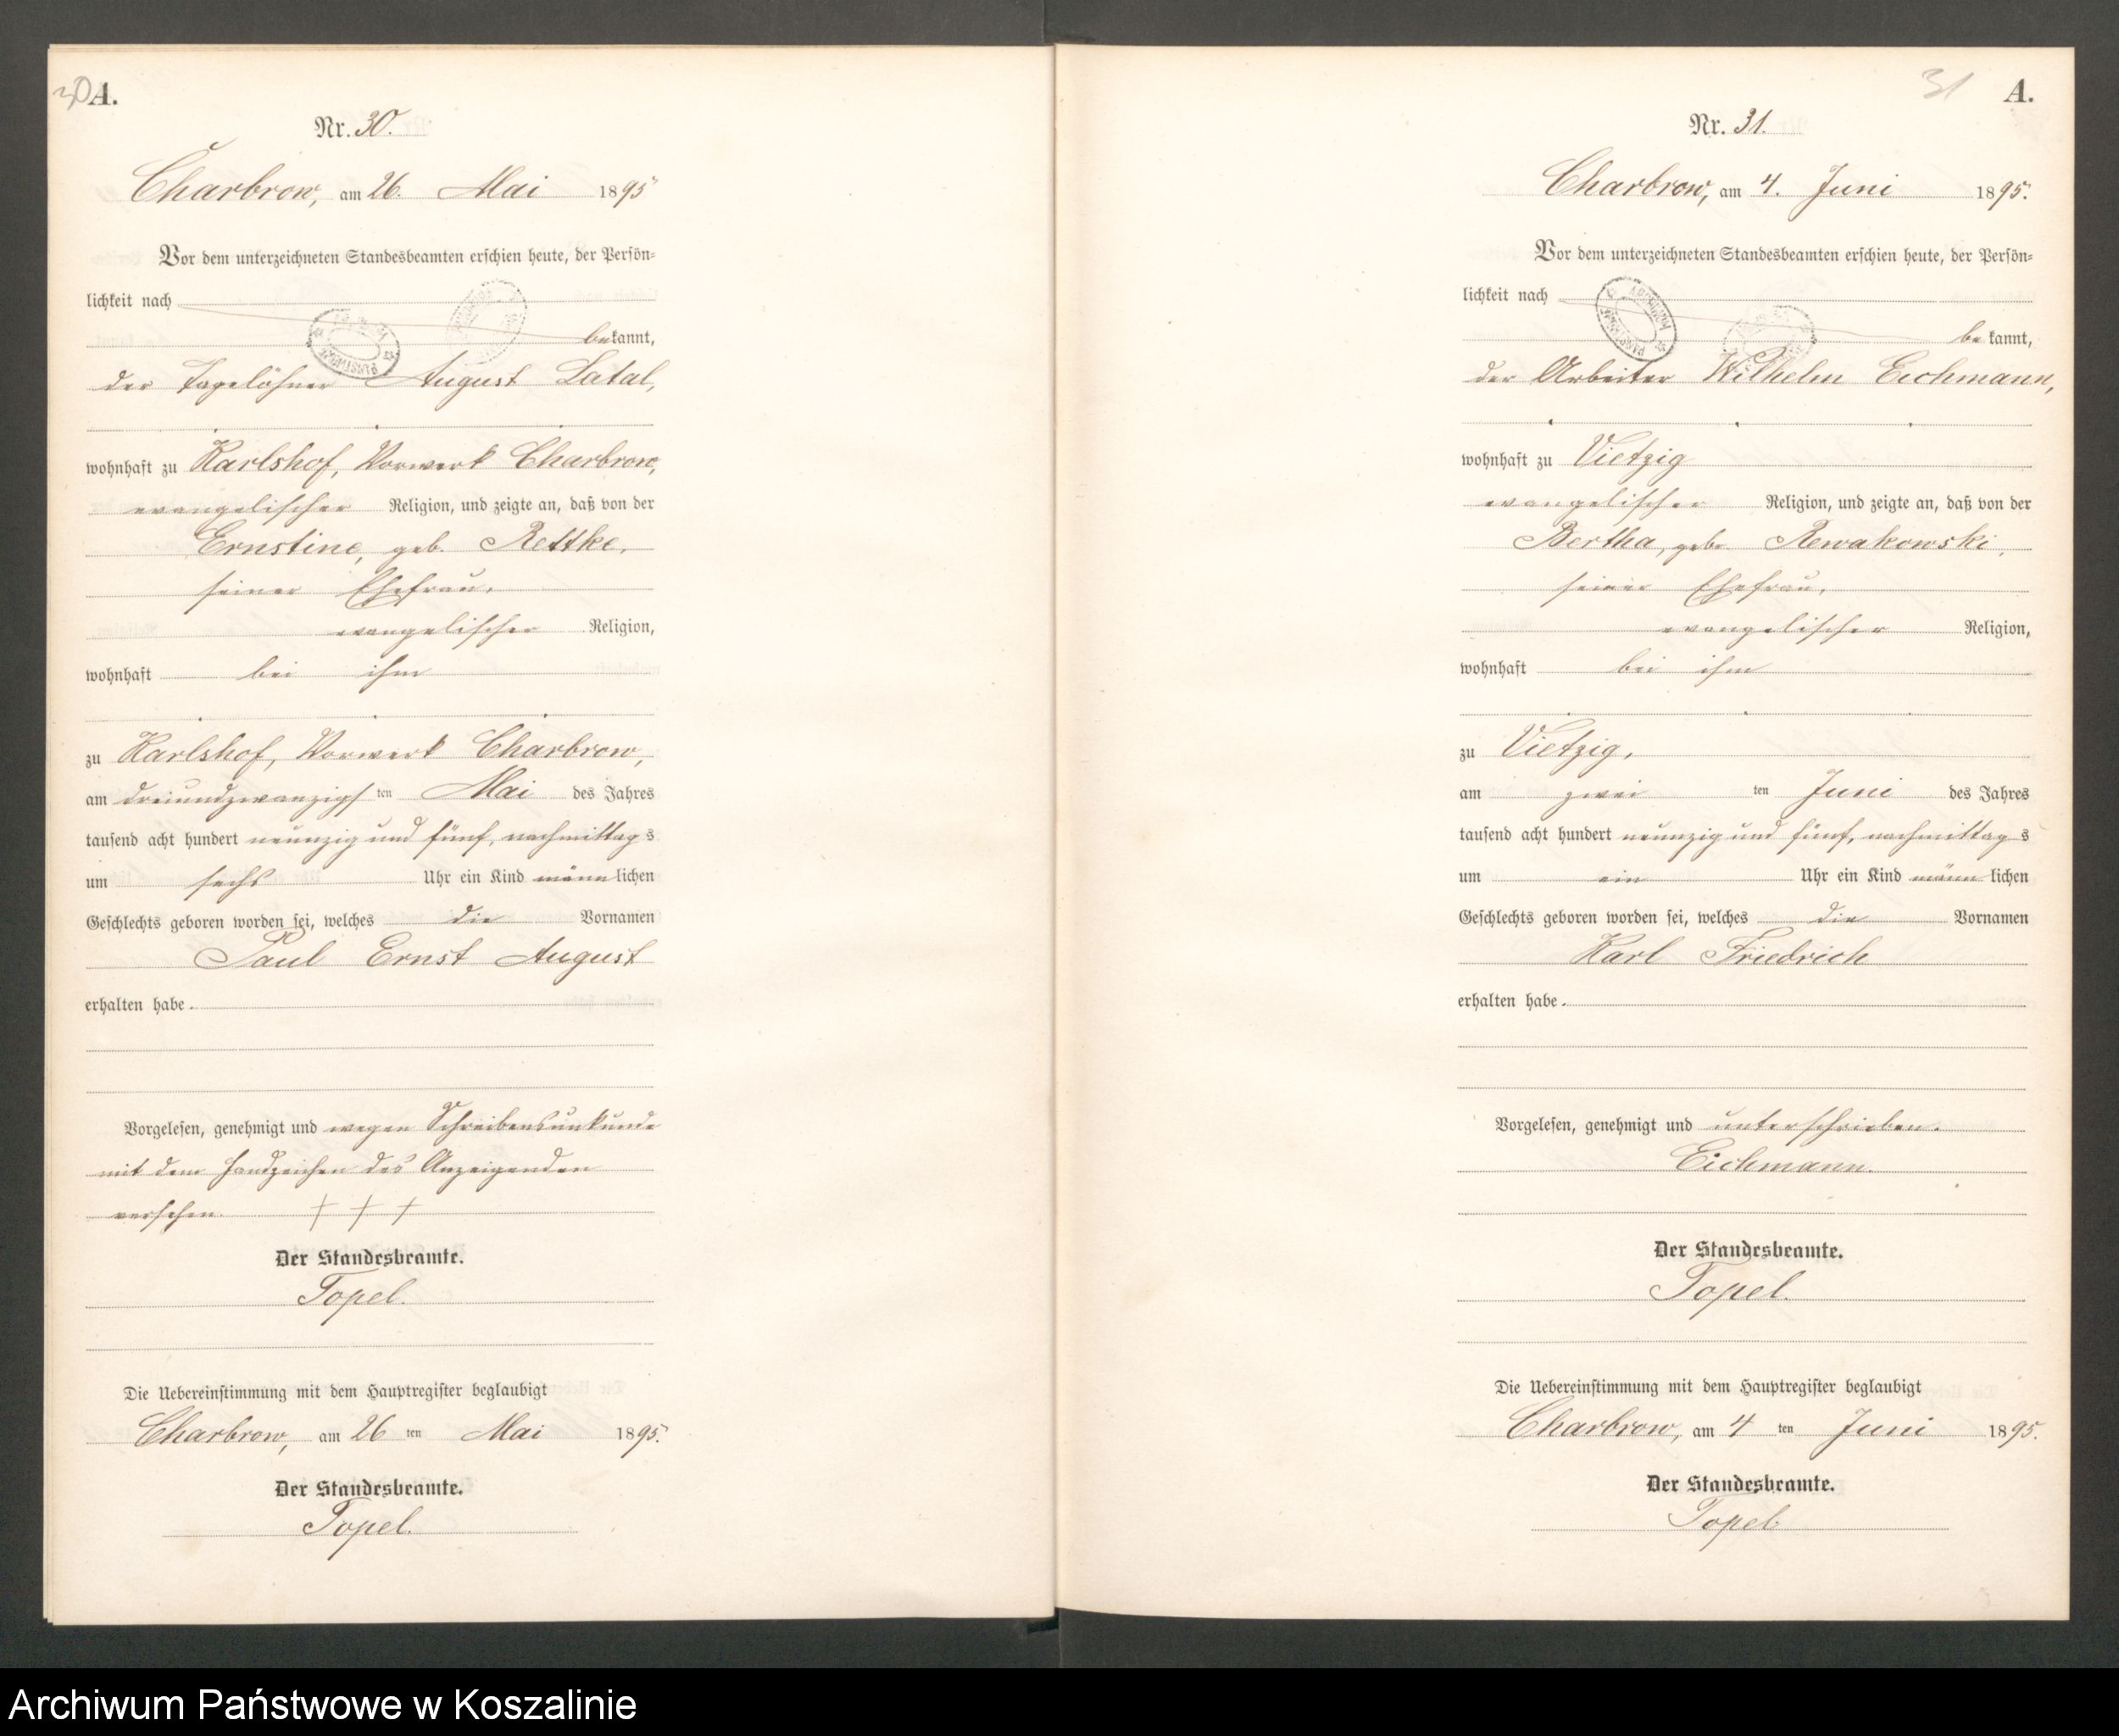 30 A.
Nr. 30.
Charbrow, am 26. Mai 1895
Vor dem unterzeichneten Standesbeamten erschien heute, der Persön-
lichkeit nach
bekannt,
der Tagelöhner August Latal,
wohnhaft zu Karlshof, Vorwerk Charbrow,
evangelischer Religion, und zeigte an, daß von der
Ernstine, geb. Rettke,
seiner Ehefrau,
evangelischer Religion,
wohnhaft bei ihm
zu Karlshof, Vorwerk Charbrow,
am dreiundzwanzigsten Mai des Jahres
tausend acht hundert neunzig und fünf, nachmittags
um sechs Uhr ein Kind männlichen
Geschlechts geboren worden sei, welches die Vornamen
Paul Ernst August
erhalten habe.
Vorgelesen, genehmigt und wegen Schreibensunkunde
mit dem Handzeichen des Anzeigenden
versehen. + + +
Der Standesbeamte.
Topel.
Die Uebereinstimmung mit dem Hauptregister beglaubigt
Charbrow, am 26 ten Mai 1895.
Der Standesbeamte.
Topel.
31 A.
Nr. 31.
Charbrow, am 4. Juni 1895.
Vor dem unterzeichneten Standesbeamten erschien heute, der Persön-
lichkeit nach
bekannt,
der Arbeiter Wilhelm Eichmann,
wohnhaft zu Vietzig
evangelischer Religion, und zeigte an, daß von der
Bertha, geb. Rewakowski,
seiner Ehefrau,
evangelischer Religion,
wohnhaft bei ihm
zu Vietzig,
am zwei ten Juni des Jahres
tausend acht hundert neunzig und fünf, nachmittags
um ein Uhr ein Kind männlichen
Geschlechts geboren worden sei, welches die Vornamen
Karl Friedrich
erhalten habe.
Vorgelesen, genehmigt und unterschrieben.
Eichmann.
Der Standesbeamte.
Topel.
Die Uebereinstimmung mit dem Hauptregister beglaubigt
Charbrow, am 4 ten Juni 1895.
Der Standesbeamte.
Topel
Archiwum Państwowe w Koszalinie